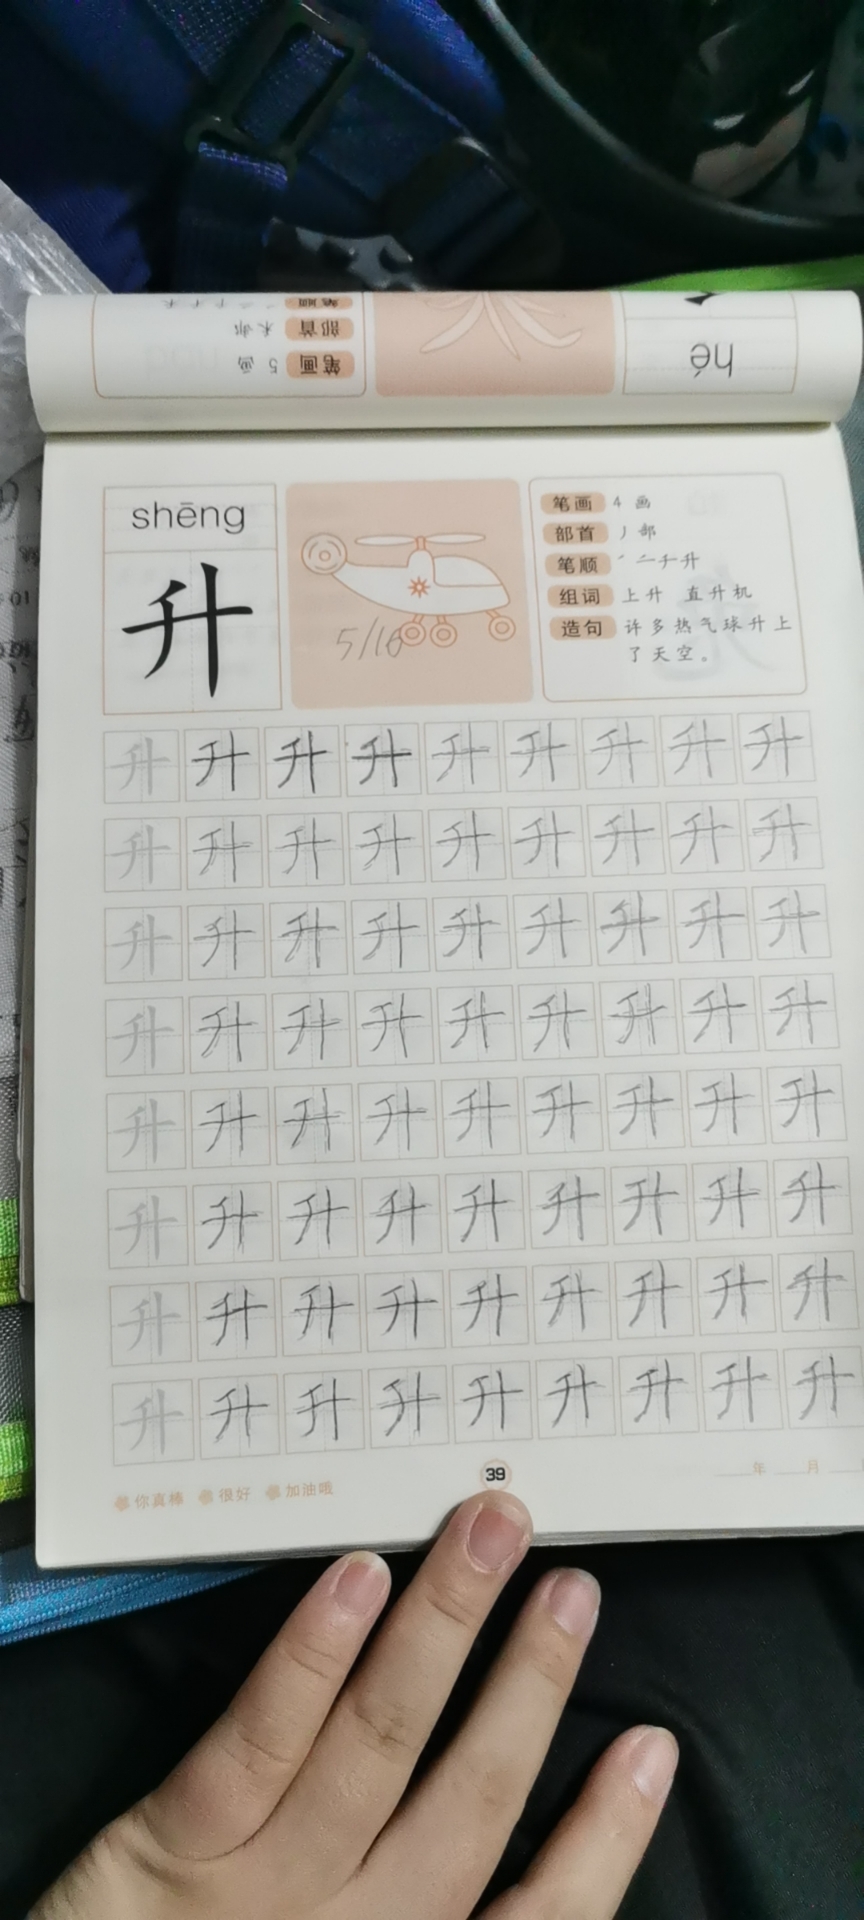 hé
笔画 5 画
部首 木部
笔顺
shēng
升
笔画 4 画
部首 丿部
笔顺 ノ 二 チ 升
组词 上升 直升机
造句 许多热气球升上
了天空。
5/16
升 升 升 升 升 升 升 升 升
升 升 升 升 升 升 升 升 升
升 升 升 升 升 升 升 升 升
升 升 升 升 升 升 升 升 升
升 升 升 升 升 升 升 升 升
升 升 升 升 升 升 升 升 升
升 升 升 升 升 升 升 升 升
升 升 升 升 升 升 升 升 升
你真棒 很好 加油哦
39
年 月